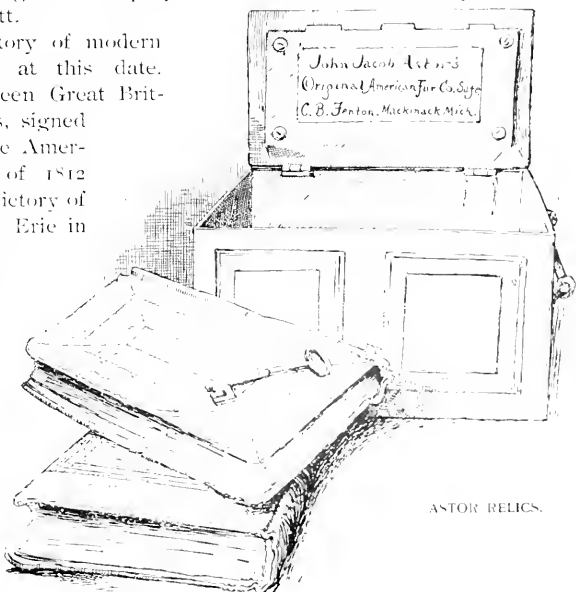 tt.
tory of modern
at this date.
een Great Brit-
s, signed
e Amer-
of 1812
ictory of
Erie in
John Jacob Astor's
Original American Fur Co. Safe
C. B. Fenton, Mackinack Mich.
ASTOR RELICS.